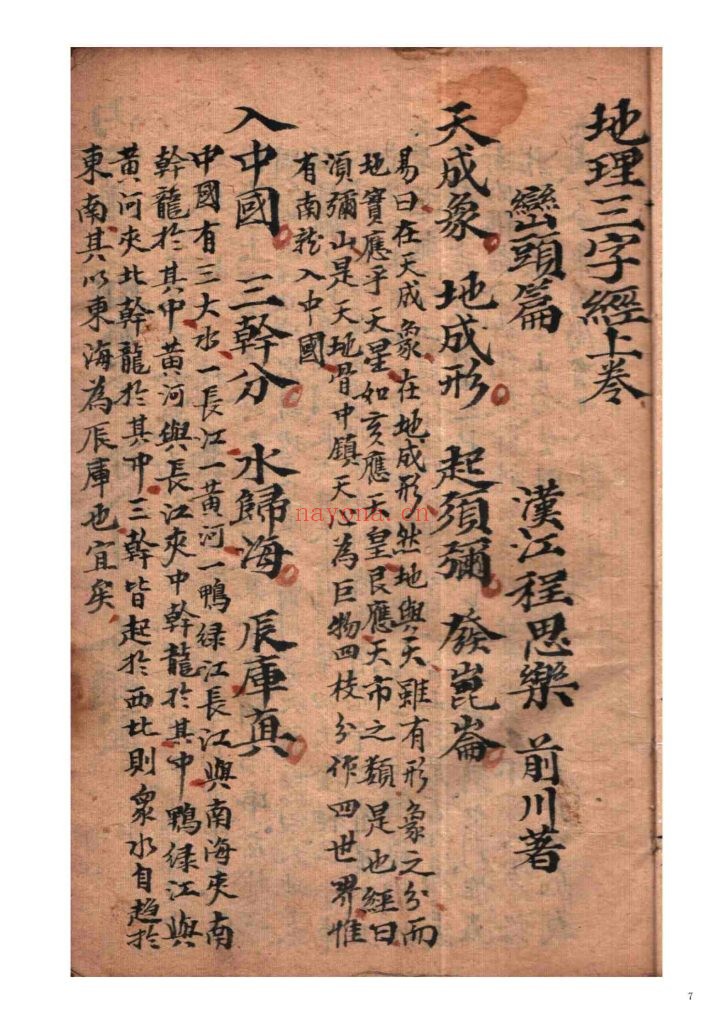 地理三字經上卷
巒頭篇 漢江程思樂 前川著
天成象 地成形 起須彌 發崑崙
易曰在天成象在地成形然地與天雖有形象之分而
地實應乎天星如亥應天皇艮應天市之類是也經曰
須彌山是天地骨中鎮天心為巨物四枝分作四世界惟
有南龍入中國
入中國 三幹分 水歸海 辰庫真
中國有三大水一長江一黃河一鴨绿江長江與南海夾南
幹龍於其中黃河與長江夾中幹龍於其中鴨绿江與
黃河夾北幹龍於其中三幹皆起於西北則衆水自趨於
東南其以東海為辰庫也宜矣
nayona.cn
7